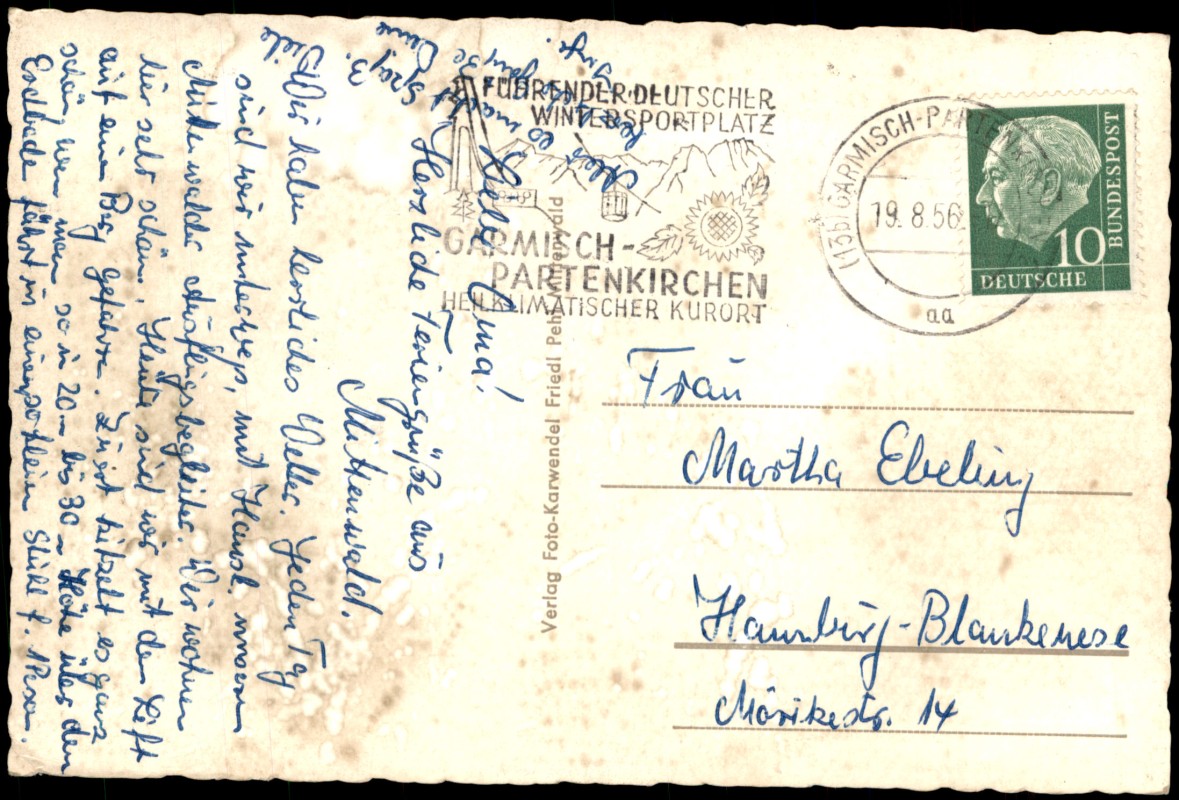 Liebe Oma!
Herzliche Feriengrüße aus
Mittenwald.
Wir haben herrliches Wetter. Jeden Tag
sind wir unterwegs, mit Hansl, unserem
Mittenwalder Ausflugsbegleiter. Wir wohnen
hier sehr schön. Heute sind wir mit dem Lift
auf einen Berg gefahren. Zuerst kitzelt es ganz
schön, wenn man so in 20 m bis 30 m Höhe über dem
Erdboden fährt in einem Stühl f. 1 Person.
Aber es macht ganz
Viele
Grüße
Deine
FÜHRENDER DEUTSCHER
WINTERSPORTPLATZ
GARMISCH-
PARTENKIRCHEN
HEILKLIMATISCHER KURORT
(13b) GARMISCH-PARTENKIRCHEN
19. 8. 56
aa
10
DEUTSCHE
BUNDESPOST
Verlag Foto-Karwendel Friedl Mittenwald
Frau
Martha Ebeling
Hamburg-Blankenese
Mörikestr. 14